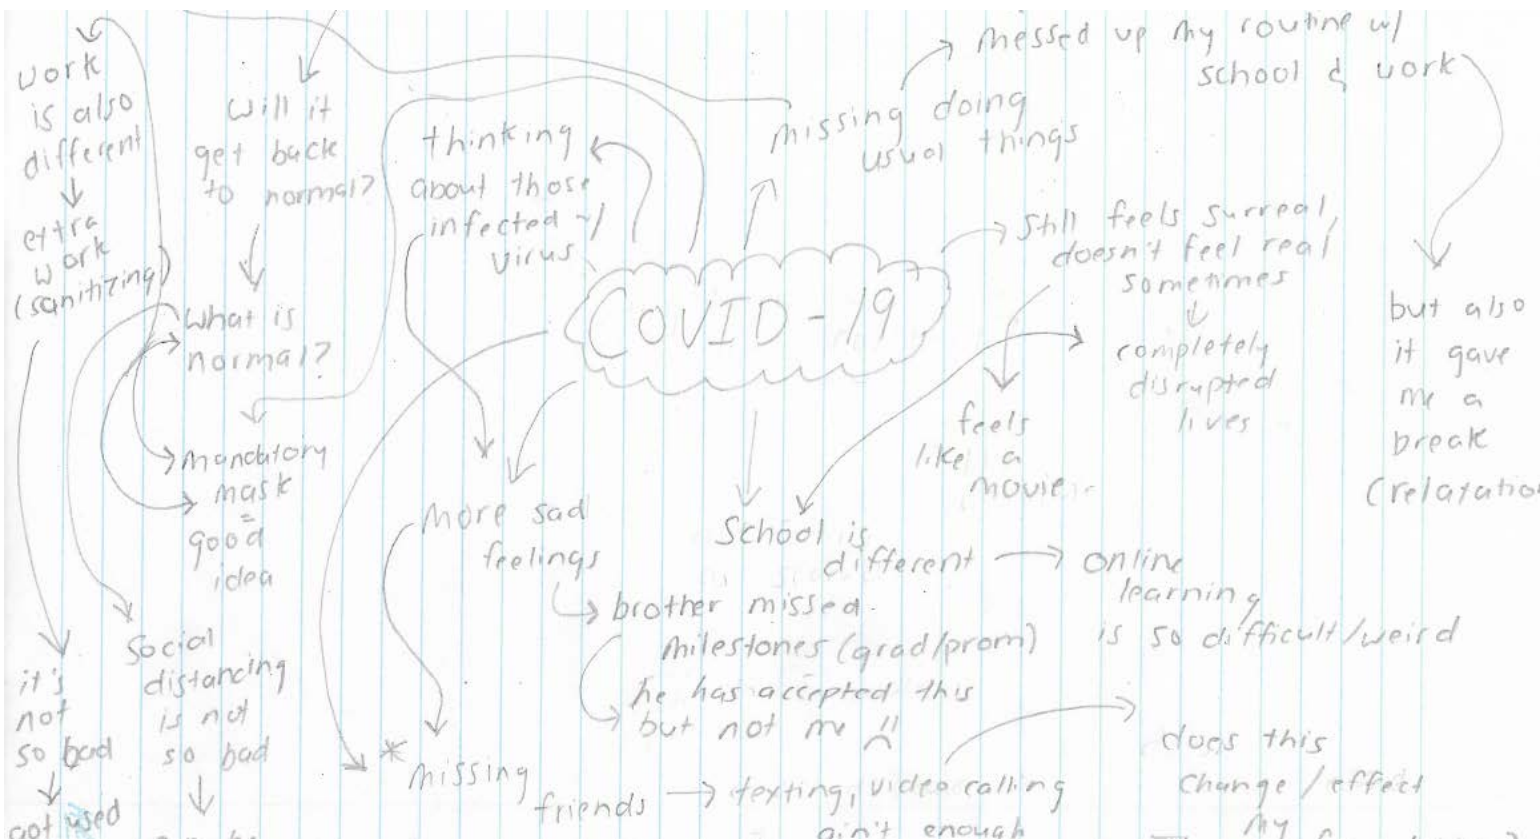 work
is also
different
extra
work
(sanitizing)
it's
not
so bad
got used
will it
get back
to normal?
what is
normal?
mandatory
mask
=
good
idea
social
distancing
is not
so bad
thinking
about those
infected w/
virus
COVID-19
missing doing
usual things
messed up my routine w/
school & work
but also
it gave
me a
break
(relaxation
still feels surreal,
doesn't feel real
sometimes
completely
disrupted
lives
feels
like a
movie.
more sad
feelings
brother missed
milestones (grad/prom)
he has accepted this
but not me
School is
different
online
learning
is so difficult/weird
* missing
friends
texting, video calling
ain't enough
does this
change/effect
my